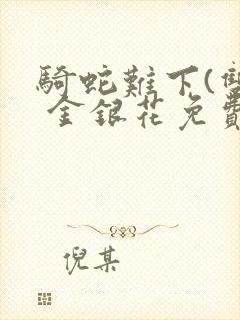 騎蛇難下(雙
金銀花免費
倪某